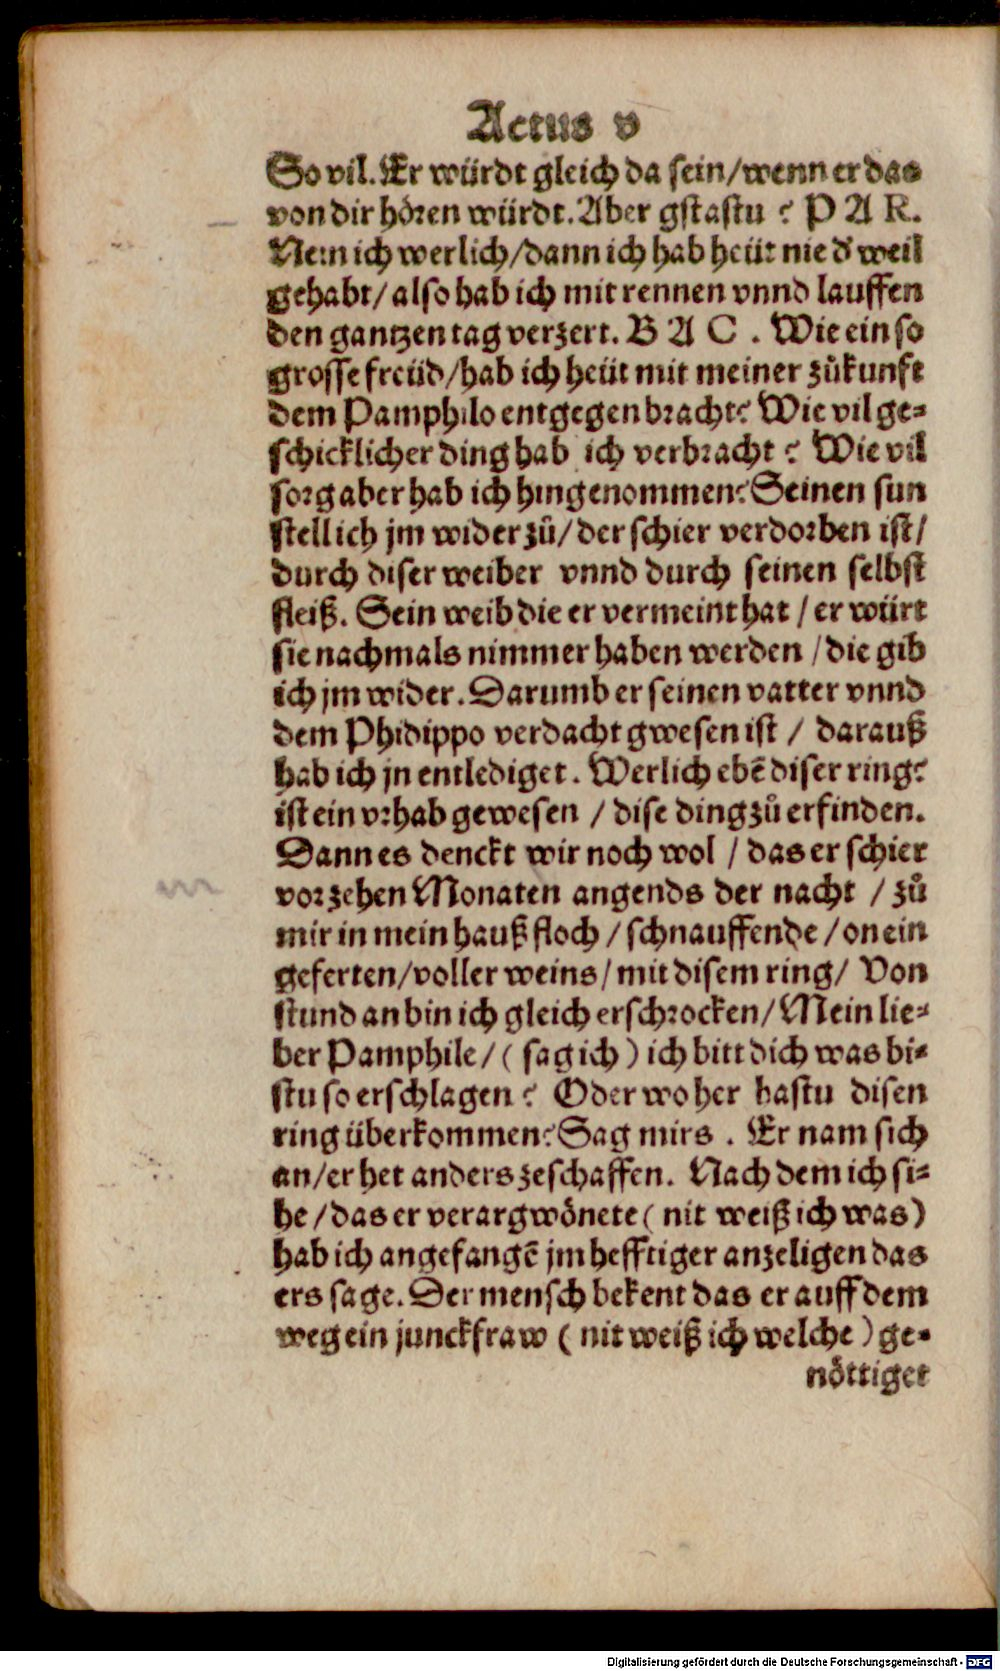 Actus v
So vil. Er würdt gleich da sein/wenn er das
von dir hören würdt. Aber gstastu ? P A R.
Nein ich werlich/dann ich hab heüt nie d' weil
gehabt/ also hab ich mit rennen vnnd lauffen
den gantzen tag verzert. B A C . Wie ein so
grosse freüd/hab ich heüt mit meiner zůkunft
dem Pamphilo entgegen bracht? Wie vil ge-
schicklicher ding hab ich verbracht ? Wie vil
sorg aber hab ich hingenommen? Seinen sun
stell ich jm wider zů/ der schier verdorben ist/
durch diser weiber vnnd durch seinen selbst
fleiß. Sein weib die er vermeint hat / er würt
sie nachmals nimmer haben werden /die gib
ich jm wider. Darumb er seinen vatter vnnd
dem Phidippo verdacht gwesen ist / darauß
hab ich jn entlediget. Werlich ebē diser ring?
ist ein vrhab gewesen / dise ding zů erfinden.
Dann es denckt wir noch wol / das er schier
vor zehen Monaten angends der nacht / zů
mir in mein hauß floch / schnauffende / on ein
geferten/voller weins/ mit disem ring/ Von
stund an bin ich gleich erschrocken/ Mein lie-
ber Pamphile/ ( sag ich ) ich bitt dich was bi-
stu so erschlagen ? Oder wo her hastu disen
ring überkommen? Sag mirs . Er nam sich
an/er het anders zeschaffen. Nach dem ich si-
he /das er verargwönete ( nit weiß ich was)
hab ich angefangē jm hefftiger anzeligen das
ers sage. Der mensch bekent das er auff dem
weg ein junckfraw ( nit weiß ich welche ) ge-
nöttiget
Digitalisierung gefördert durch die Deutsche Forschungsgemeinschaft - DFG